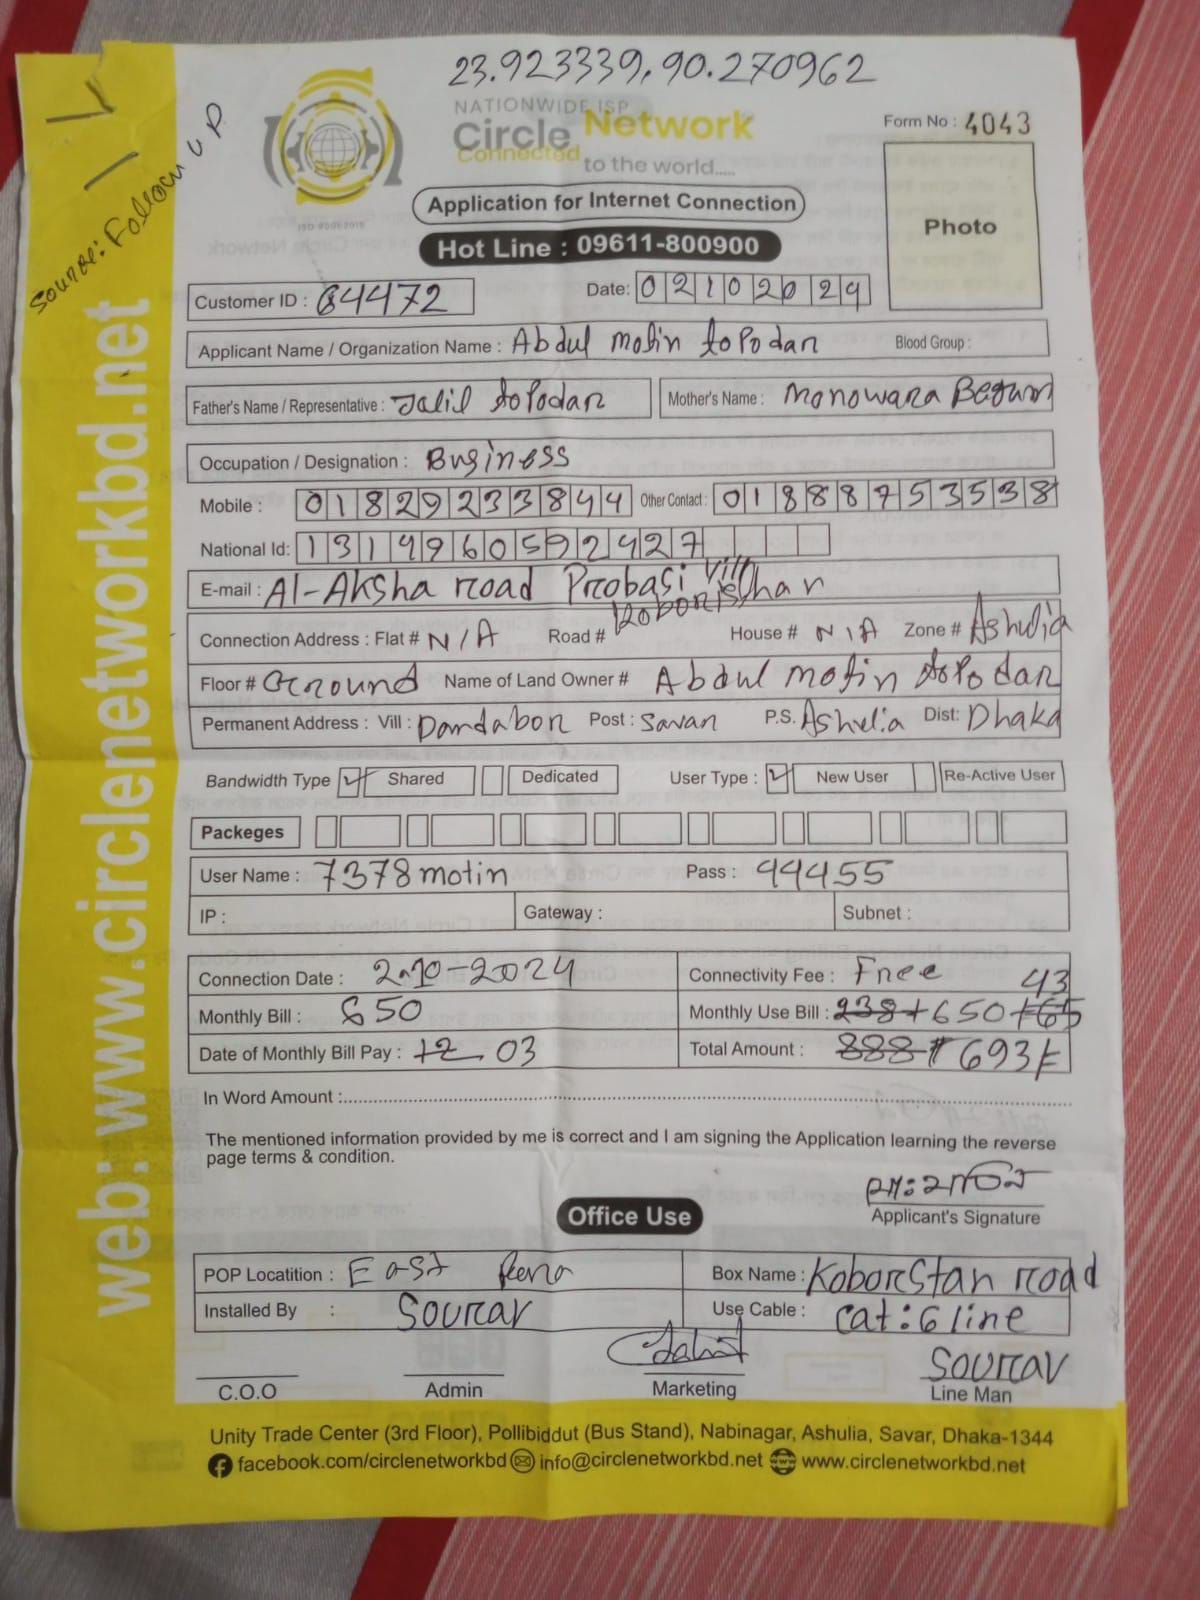 23.923339, 90.270962
NATIONWIDE ISP
Circle Network
Connected to the world.....
Form No : 4043
Source: Follow UP
ISO 9001:2015
Application for Internet Connection
Photo
Hot Line : 09611-800900
Customer ID : 64472
Date: 02102024
Applicant Name / Organization Name : Abdul motin toPodar Blood Group :
Father's Name / Representative : Jalil toPodar Mother's Name : Monowara Begum
Occupation / Designation : Business
Mobile : 01829233844 Other Contact : 01888753538
National Id: 1314960592427
E-mail : Al-Aksha road Probasi Vill
Connection Address : Flat # N/A Road # House # N/A Zone # Ashulia
Floor # Ground Name of Land Owner # Abdul motin toPodar
Permanent Address : Vill : Dandabor Post : Savar P.S. Ashulia Dist: Dhaka
Bandwidth Type Shared Dedicated User Type : New User Re-Active User
Packeges
User Name : 7378motin Pass : 44455
IP : Gateway : Subnet :
Connection Date : 2-10-2024 Connectivity Fee : Free
43
Monthly Bill : 650 Monthly Use Bill : 238+650+65
Date of Monthly Bill Pay : 12 03 Total Amount : 888 693/=
In Word Amount :
The mentioned information provided by me is correct and I am signing the Application learning the reverse
page terms & condition.
Applicant's Signature
Office Use
POP Locatition : East Box Name : Koborstan road
Installed By : Sourav Use Cable : Cat:6 line
Sourav
C.O.O Admin Marketing Line Man
Unity Trade Center (3rd Floor), Pollibiddut (Bus Stand), Nabinagar, Ashulia, Savar, Dhaka-1344
facebook.com/circlenetworkbd info@circlenetworkbd.net www.circlenetworkbd.net
web: www.circlenetworkbd.net